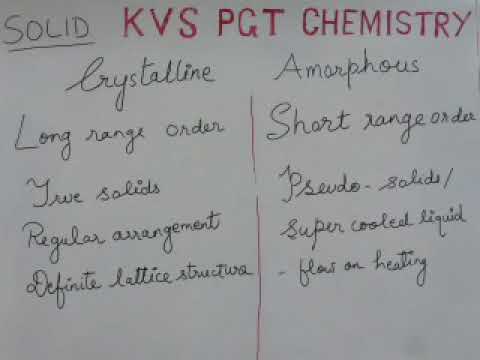 SOLID KVS PGT CHEMISTRY
Crystalline
Amorphous
Long range order
Short range order
True solids
Pseudo-solids/
Regular arrangement
Super cooled liquid
Definite lattice structure
- flow on heating